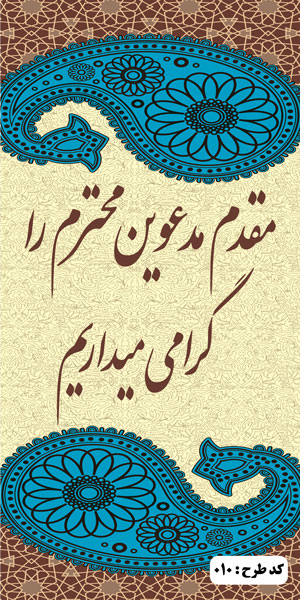 مقدم مدعوین محترم را
گرامی میداریم
کد طرح: ۰۱۰